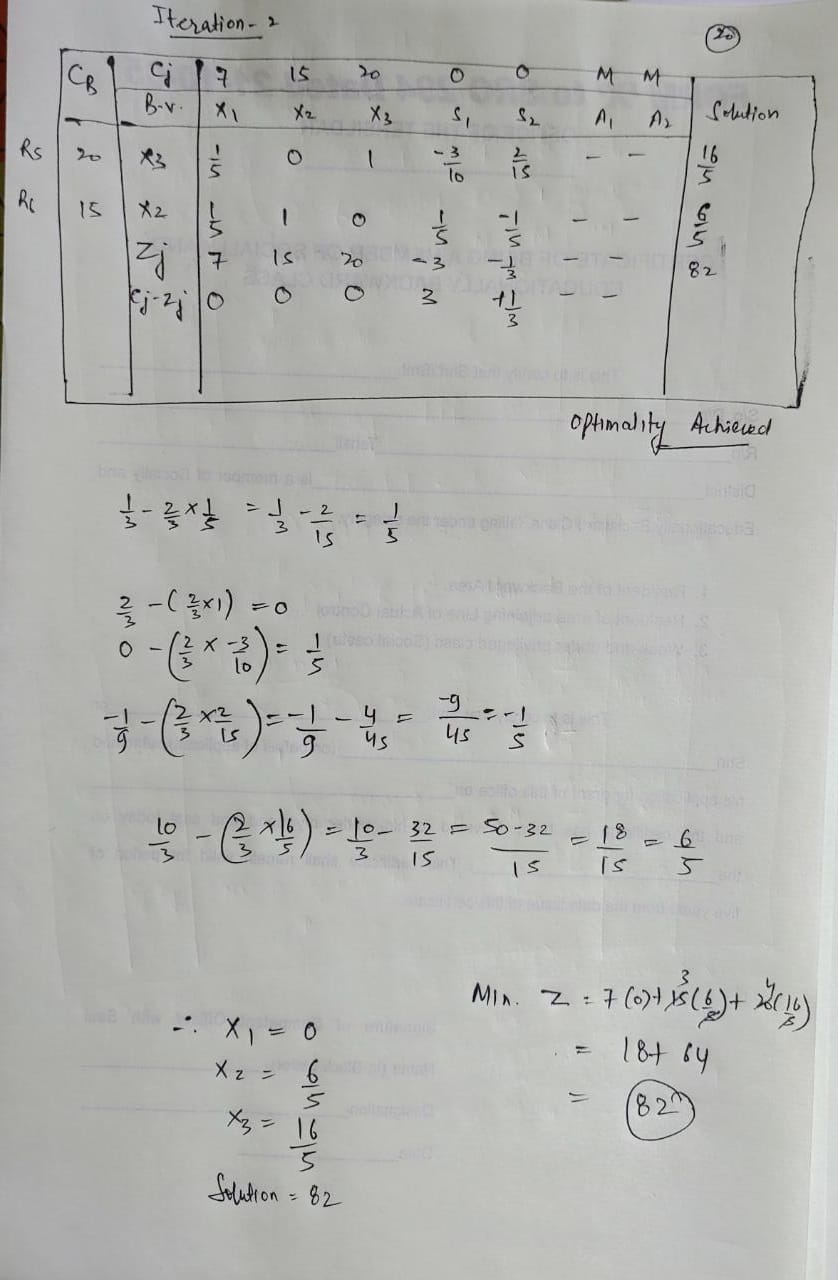 Iteration-2
20
CB Cj 7 15 20 0 0 M M
B.v. X1 X2 X3 S1 S2 A1 A2 Solution
R5 20 X3 1/5 0 1 -3/10 2/15 - - 16/5
R6 15 X2 1/5 1 0 1/5 -1/5 - - 6/5
Zj 7 15 20 -3 -1/3 - - 82
Cj-Zj 0 0 0 3 +1/3 - -
Optimality Achieved
1/3 - 2/3 × 1/5 = 1/3 - 2/15 = 1/5
2/3 - (2/3 × 1) = 0
0 - (2/3 × -3/10) = 1/5
-1/9 - (2/3 × 2/15) = -1/9 - 4/45 = -9/45 = -1/5
10/3 - (2/3 × 16/5) = 10/3 - 32/15 = 50-32/15 = 18/15 = 6/5
Min. Z = 7(0) + 15(6/5) + 20(16/5)
3 4
= 18 + 64
= 82
∴ X1 = 0
X2 = 6/5
X3 = 16/5
Solution = 82